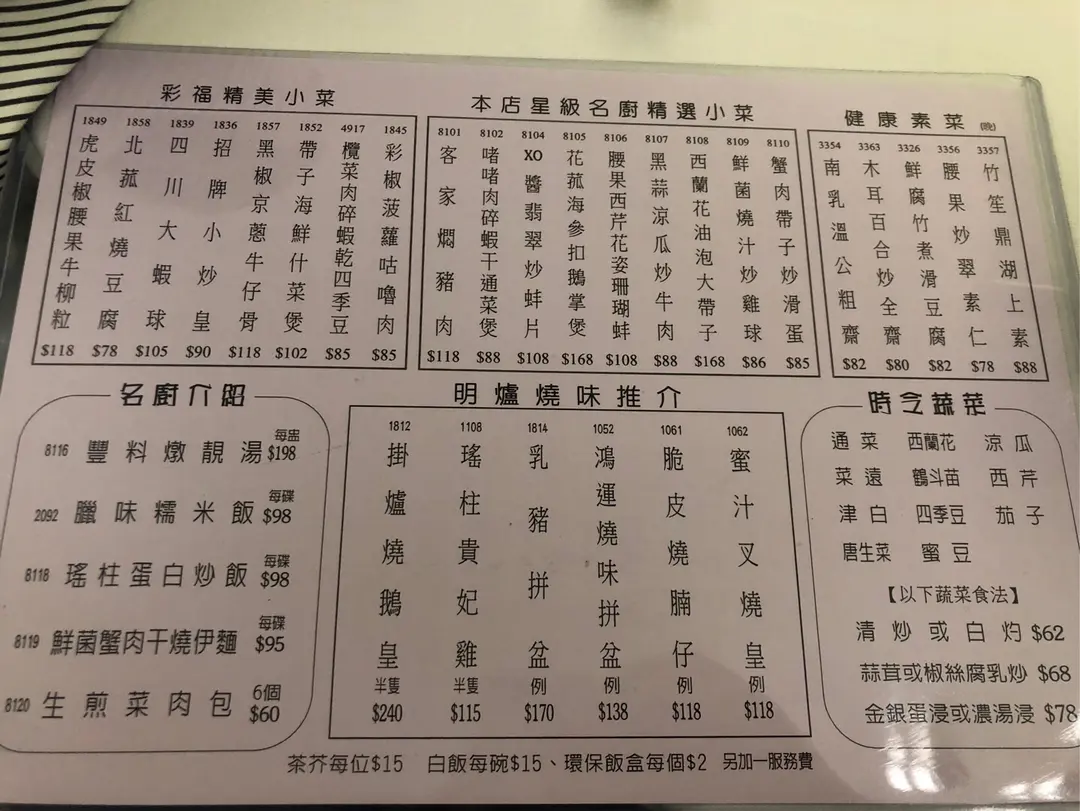 彩福精美小菜
1849 虎皮椒腰果牛柳粒 $118
1858 北菰紅燒豆腐 $78
1839 四川大蝦球 $105
1836 招牌小炒皇 $90
1857 黑椒京蔥牛仔骨 $118
1852 帶子海鮮什菜煲 $102
4917 欖菜肉碎蝦乾四季豆 $85
1845 彩椒菠蘿咕嚕肉 $85
本店星級名廚精選小菜
8101 客家燜豬肉 $118
8102 啫啫肉碎蝦干通菜煲 $88
8104 XO醬翡翠炒蚌片 $108
8105 花菰海參扣鵝掌煲 $168
8106 腰果西芹花姿珊瑚蚌 $108
8107 黑蒜涼瓜炒牛肉 $88
8108 西蘭花油泡大帶子 $168
8109 鮮菌燒汁炒雞球 $86
8110 蟹肉帶子炒滑蛋 $85
健康素菜(晚)
3354 南乳溫公粗齋 $82
3363 木耳百合炒全齋 $80
3326 鮮腐竹煮滑豆腐 $82
3356 腰果炒翠素仁 $78
3357 竹笙鼎湖上素 $88
名廚介紹
8116 豐料燉靚湯 每盅 $198
2092 臘味糯米飯 每碟 $98
8118 瑤柱蛋白炒飯 每碟 $98
8119 鮮菌蟹肉干燒伊麵 每碟 $95
8120 生煎菜肉包 6個 $60
明爐燒味推介
1812 掛爐燒鵝皇 半隻 $240
1108 瑤柱貴妃雞 半隻 $115
1814 乳豬拼盆 例 $170
1052 鴻運燒味拼盆 例 $138
1061 脆皮燒腩仔 例 $118
1062 蜜汁叉燒皇 例 $118
時令蔬菜
通菜 西蘭花 涼瓜
菜遠 鶴斗苗 西芹
津白 四季豆 茄子
唐生菜 蜜豆
【以下蔬菜食法】
清炒或白灼 $62
蒜茸或椒絲腐乳炒 $68
金銀蛋浸或濃湯浸 $78
茶芥每位$15 白飯每碗$15、環保飯盒每個$2 另加一服務費